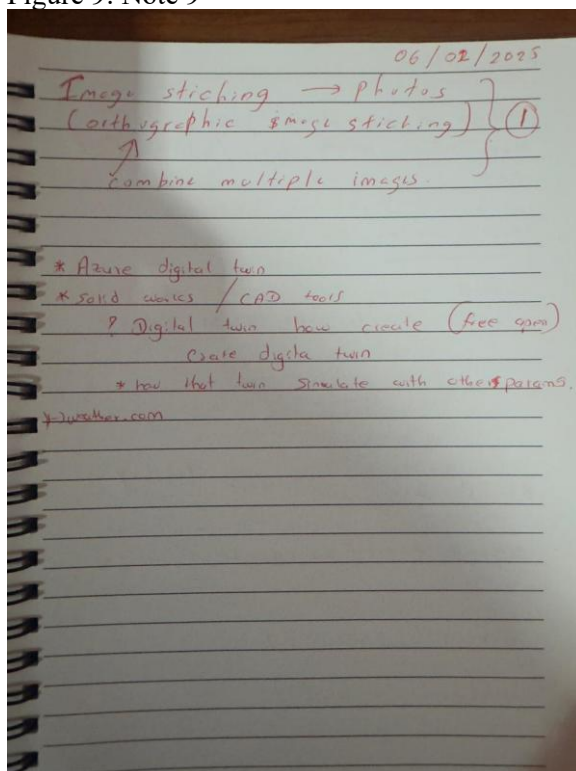 Figure 9: Note 9
06/02/2025
Image stiching → photos
(orthographic image stiching) ①
combine multiple images.
* Azure digital twin
* Solid works / CAD tools
? Digital twin how create (free open)
Create digita twin
* how that twin simulate with others params.
weather.com